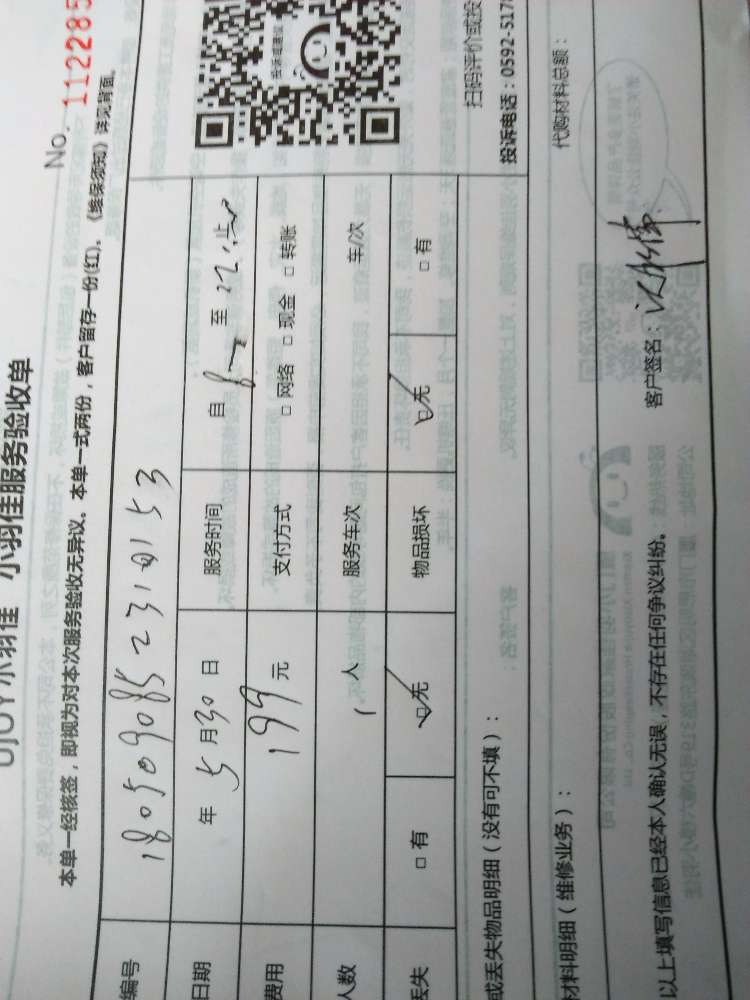 No. 112285
UJOY小羽佳 小羽佳服务验收单
本单一经核签，即视为对本次服务验收无异议。本单一式两份，客户留存一份(红)。《维保须知》详见背面。
编号 180509085231015 3
日期 年 5 月 30 日 服务时间 自 8 至 12 止
费用 199 元 支付方式 □ 网络 □ 现金 □ 转账
人数 1 人 服务车次 车/次
丢失 □ 有 □ 无 物品损坏 □ 无 □ 有
或丢失物品明细（没有可不填）：
扫码评价或投
投诉电话：0592-517
材料明细（维修业务）： 代购材料总额：
以上填写信息已经本人确认无误，不存在任何争议纠纷。 客户签名：